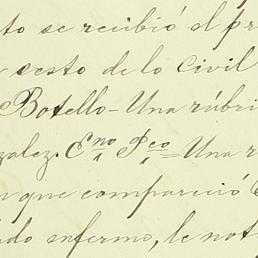 to se recibió el pr
sesto de lo Civil
Botello - Una rúbri
zalez. Eno Pco = Una r
n que compareció
do enfermo, le not